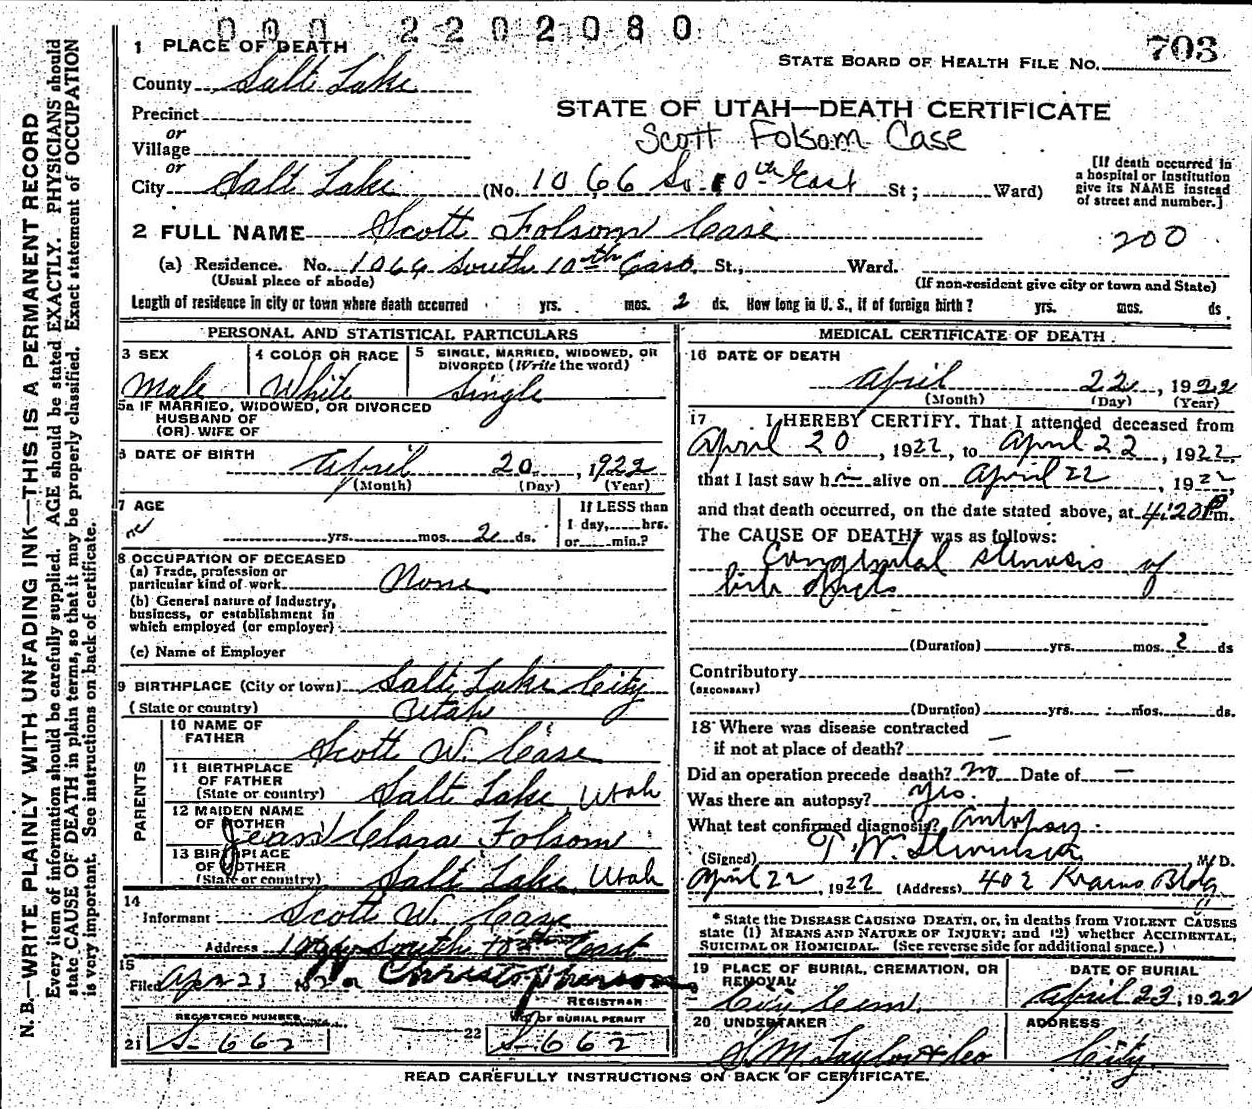 000 2202080
1 PLACE OF DEATH
STATE BOARD OF HEALTH FILE NO. 703
County Salt Lake
STATE OF UTAH—DEATH CERTIFICATE
Precinct
Scott Folsom Case
or
Village
or
City Salt Lake (No. 1066 So 10th East St ; Ward)
[If death occurred in
a hospital or institution
give its NAME instead
of street and number.]
2 FULL NAME Scott Folsom Case
200
(a) Residence. No. 1066 South 10th East St., Ward.
(Usual place of abode) (If non-resident give city or town and State)
Length of residence in city or town where death occurred yrs. mos. 2 ds. How long in U. S., if of foreign birth? yrs. mos. ds.
PERSONAL AND STATISTICAL PARTICULARS
3 SEX
Male
4 COLOR OR RACE
White
5 SINGLE, MARRIED, WIDOWED, OR
DIVORCED (Write the word)
Single
5a IF MARRIED, WIDOWED, OR DIVORCED
HUSBAND OF
(OR) WIFE OF
6 DATE OF BIRTH
April 20, 1922
(Month) (Day) (Year)
7 AGE
yrs. mos. 2 ds.
If LESS than
1 day, hrs.
or min.?
8 OCCUPATION OF DECEASED
(a) Trade, profession or
particular kind of work None
(b) General nature of Industry,
business, or establishment in
which employed (or employer)
(c) Name of Employer
9 BIRTHPLACE (City or town) Salt Lake City
(State or country) Utah
PARENTS
10 NAME OF
FATHER
Scott W. Case
11 BIRTHPLACE
OF FATHER
(State or country) Salt Lake, Utah
12 MAIDEN NAME
OF MOTHER
Jean Clara Folsom
13 BIRTHPLACE
OF MOTHER
(State or country) Salt Lake, Utah
14
Informant Scott W. Case
Address South 10th East
15
Filed Apr 23 Christopherson
REGISTRAR
REGISTERED NUMBER
21 S-662
22 NO. OF BURIAL PERMIT
S-662
MEDICAL CERTIFICATE OF DEATH
16 DATE OF DEATH
April 22, 1922
(Month) (Day) (Year)
17 I HEREBY CERTIFY, That I attended deceased from
April 20, 1922, to April 22, 1922.
that I last saw h alive on April 22, 1922
and that death occurred, on the date stated above, at 4:20 P m.
The CAUSE OF DEATH* was as follows:
Congenital stenosis of
bile ducts
(Duration) yrs. mos. 2 ds
Contributory
(SECONDARY)
(Duration) yrs. mos. ds.
18 Where was disease contracted
if not at place of death? —
Did an operation precede death? no Date of —
Was there an autopsy? yes.
What test confirmed diagnosis? Autopsy
(Signed) T. W. Stevenson M.D.
April 22, 1922 (Address) 402 Kearns Bldg
* State the DISEASE CAUSING DEATH, or, in deaths from VIOLENT CAUSES
state (1) MEANS AND NATURE OF INJURY; and (2) whether ACCIDENTAL,
SUICIDAL OR HOMICIDAL. (See reverse side for additional space.)
19 PLACE OF BURIAL, CREMATION, OR
REMOVAL
City Cem.
DATE OF BURIAL
April 23, 1922
20 UNDERTAKER
S. M. Taylor & Co
ADDRESS
City.
READ CAREFULLY INSTRUCTIONS ON BACK OF CERTIFICATE.
N. B.—WRITE PLAINLY WITH UNFADING INK—THIS IS A PERMANENT RECORD
Every item of information should be carefully supplied. AGE should be stated EXACTLY. PHYSICIANS should
state CAUSE OF DEATH in plain terms, so that it may be properly classified. Exact statement of OCCUPATION
is very important. See instructions on back of certificate.